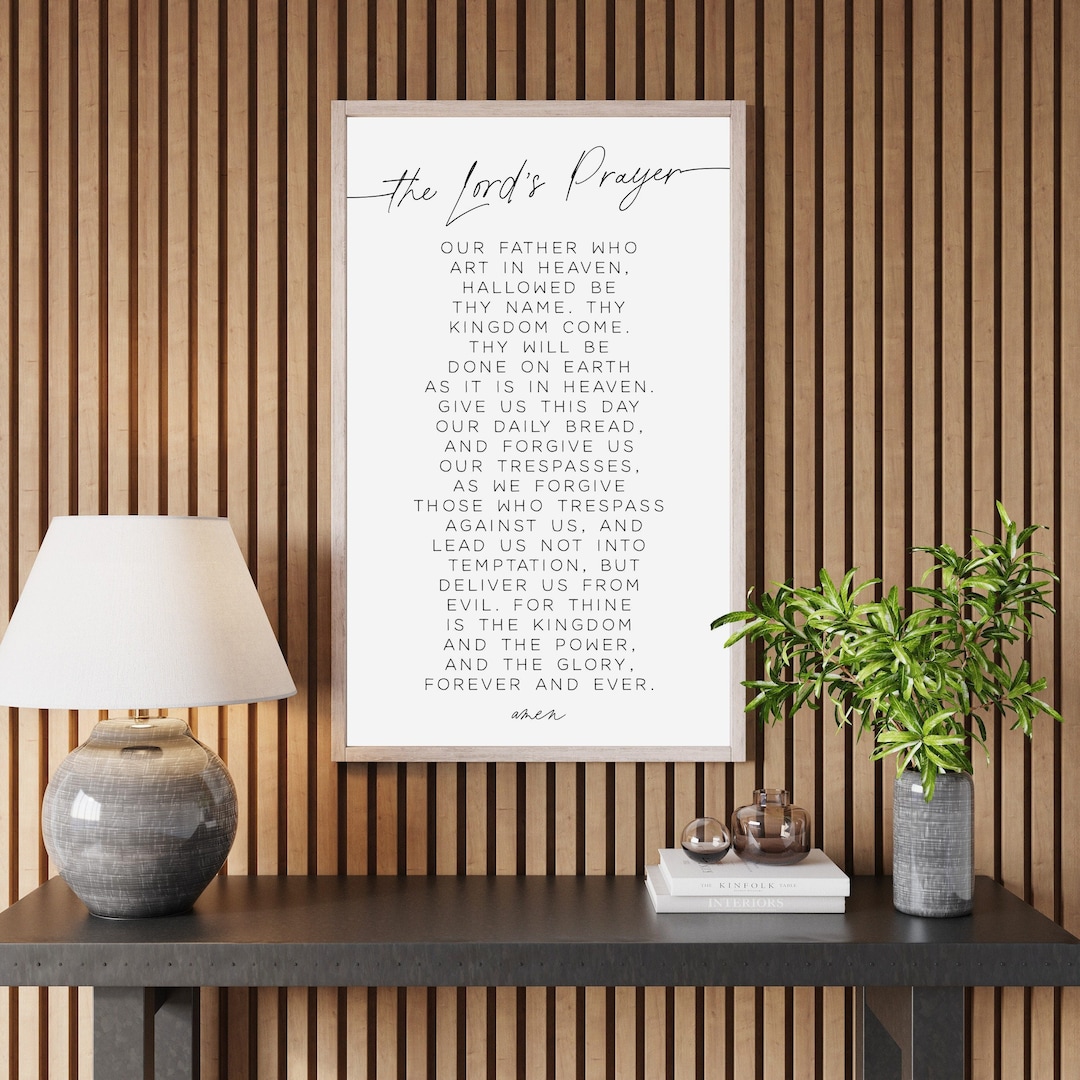 the Lord's Prayer
OUR FATHER WHO
ART IN HEAVEN,
HALLOWED BE
THY NAME. THY
KINGDOM COME.
THY WILL BE
DONE ON EARTH
AS IT IS IN HEAVEN.
GIVE US THIS DAY
OUR DAILY BREAD,
AND FORGIVE US
OUR TRESPASSES,
AS WE FORGIVE
THOSE WHO TRESPASS
AGAINST US, AND
LEAD US NOT INTO
TEMPTATION, BUT
DELIVER US FROM
EVIL. FOR THINE
IS THE KINGDOM
AND THE POWER,
AND THE GLORY,
FOREVER AND EVER.
amen
THE KINFOLK TABLE
INTERIORS